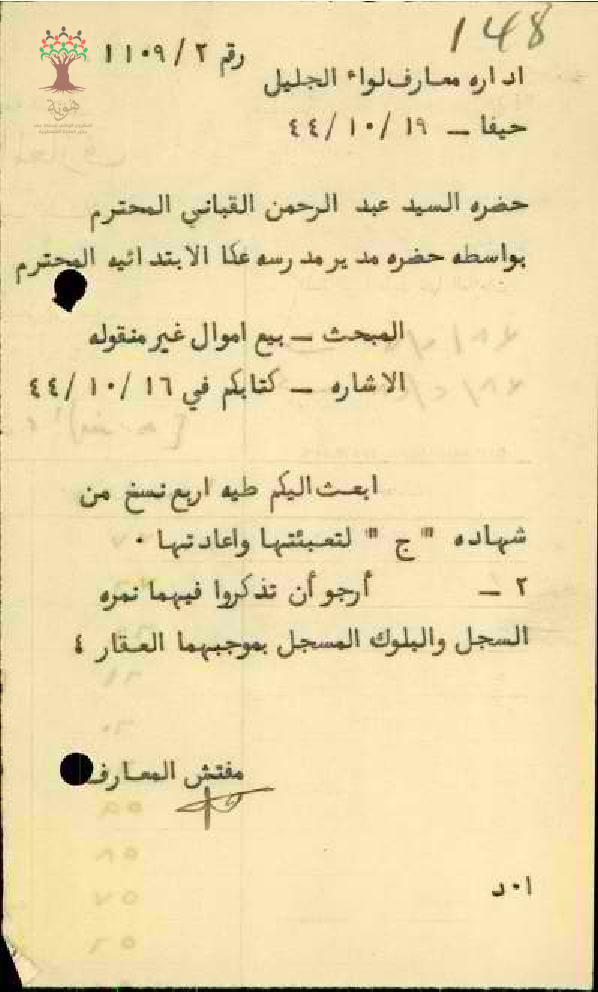 148
رقم ٢/ ١١٠٩
اداره معارف لواء الجليل
حيفا – ١٩/ ١٠/ ٤٤
هوية
حضره السيد عبد الرحمن القباني المحترم
بواسطه حضره مدير مدرسه عكا الابتدائيه المحترم
المبحث – بيع اموال غير منقوله
الاشاره – كتابكم في ١٦/ ١٠/ ٤٤
ابعث اليكم طيه اربع نسخ من
شهاده " ج " لتعبئتها واعادتها ٠
٢ – أرجو أن تذكروا فيهما نمره
السجل والبلوك المسجل بموجبهما العقار ٤
مفتش المعارف
ا٠د